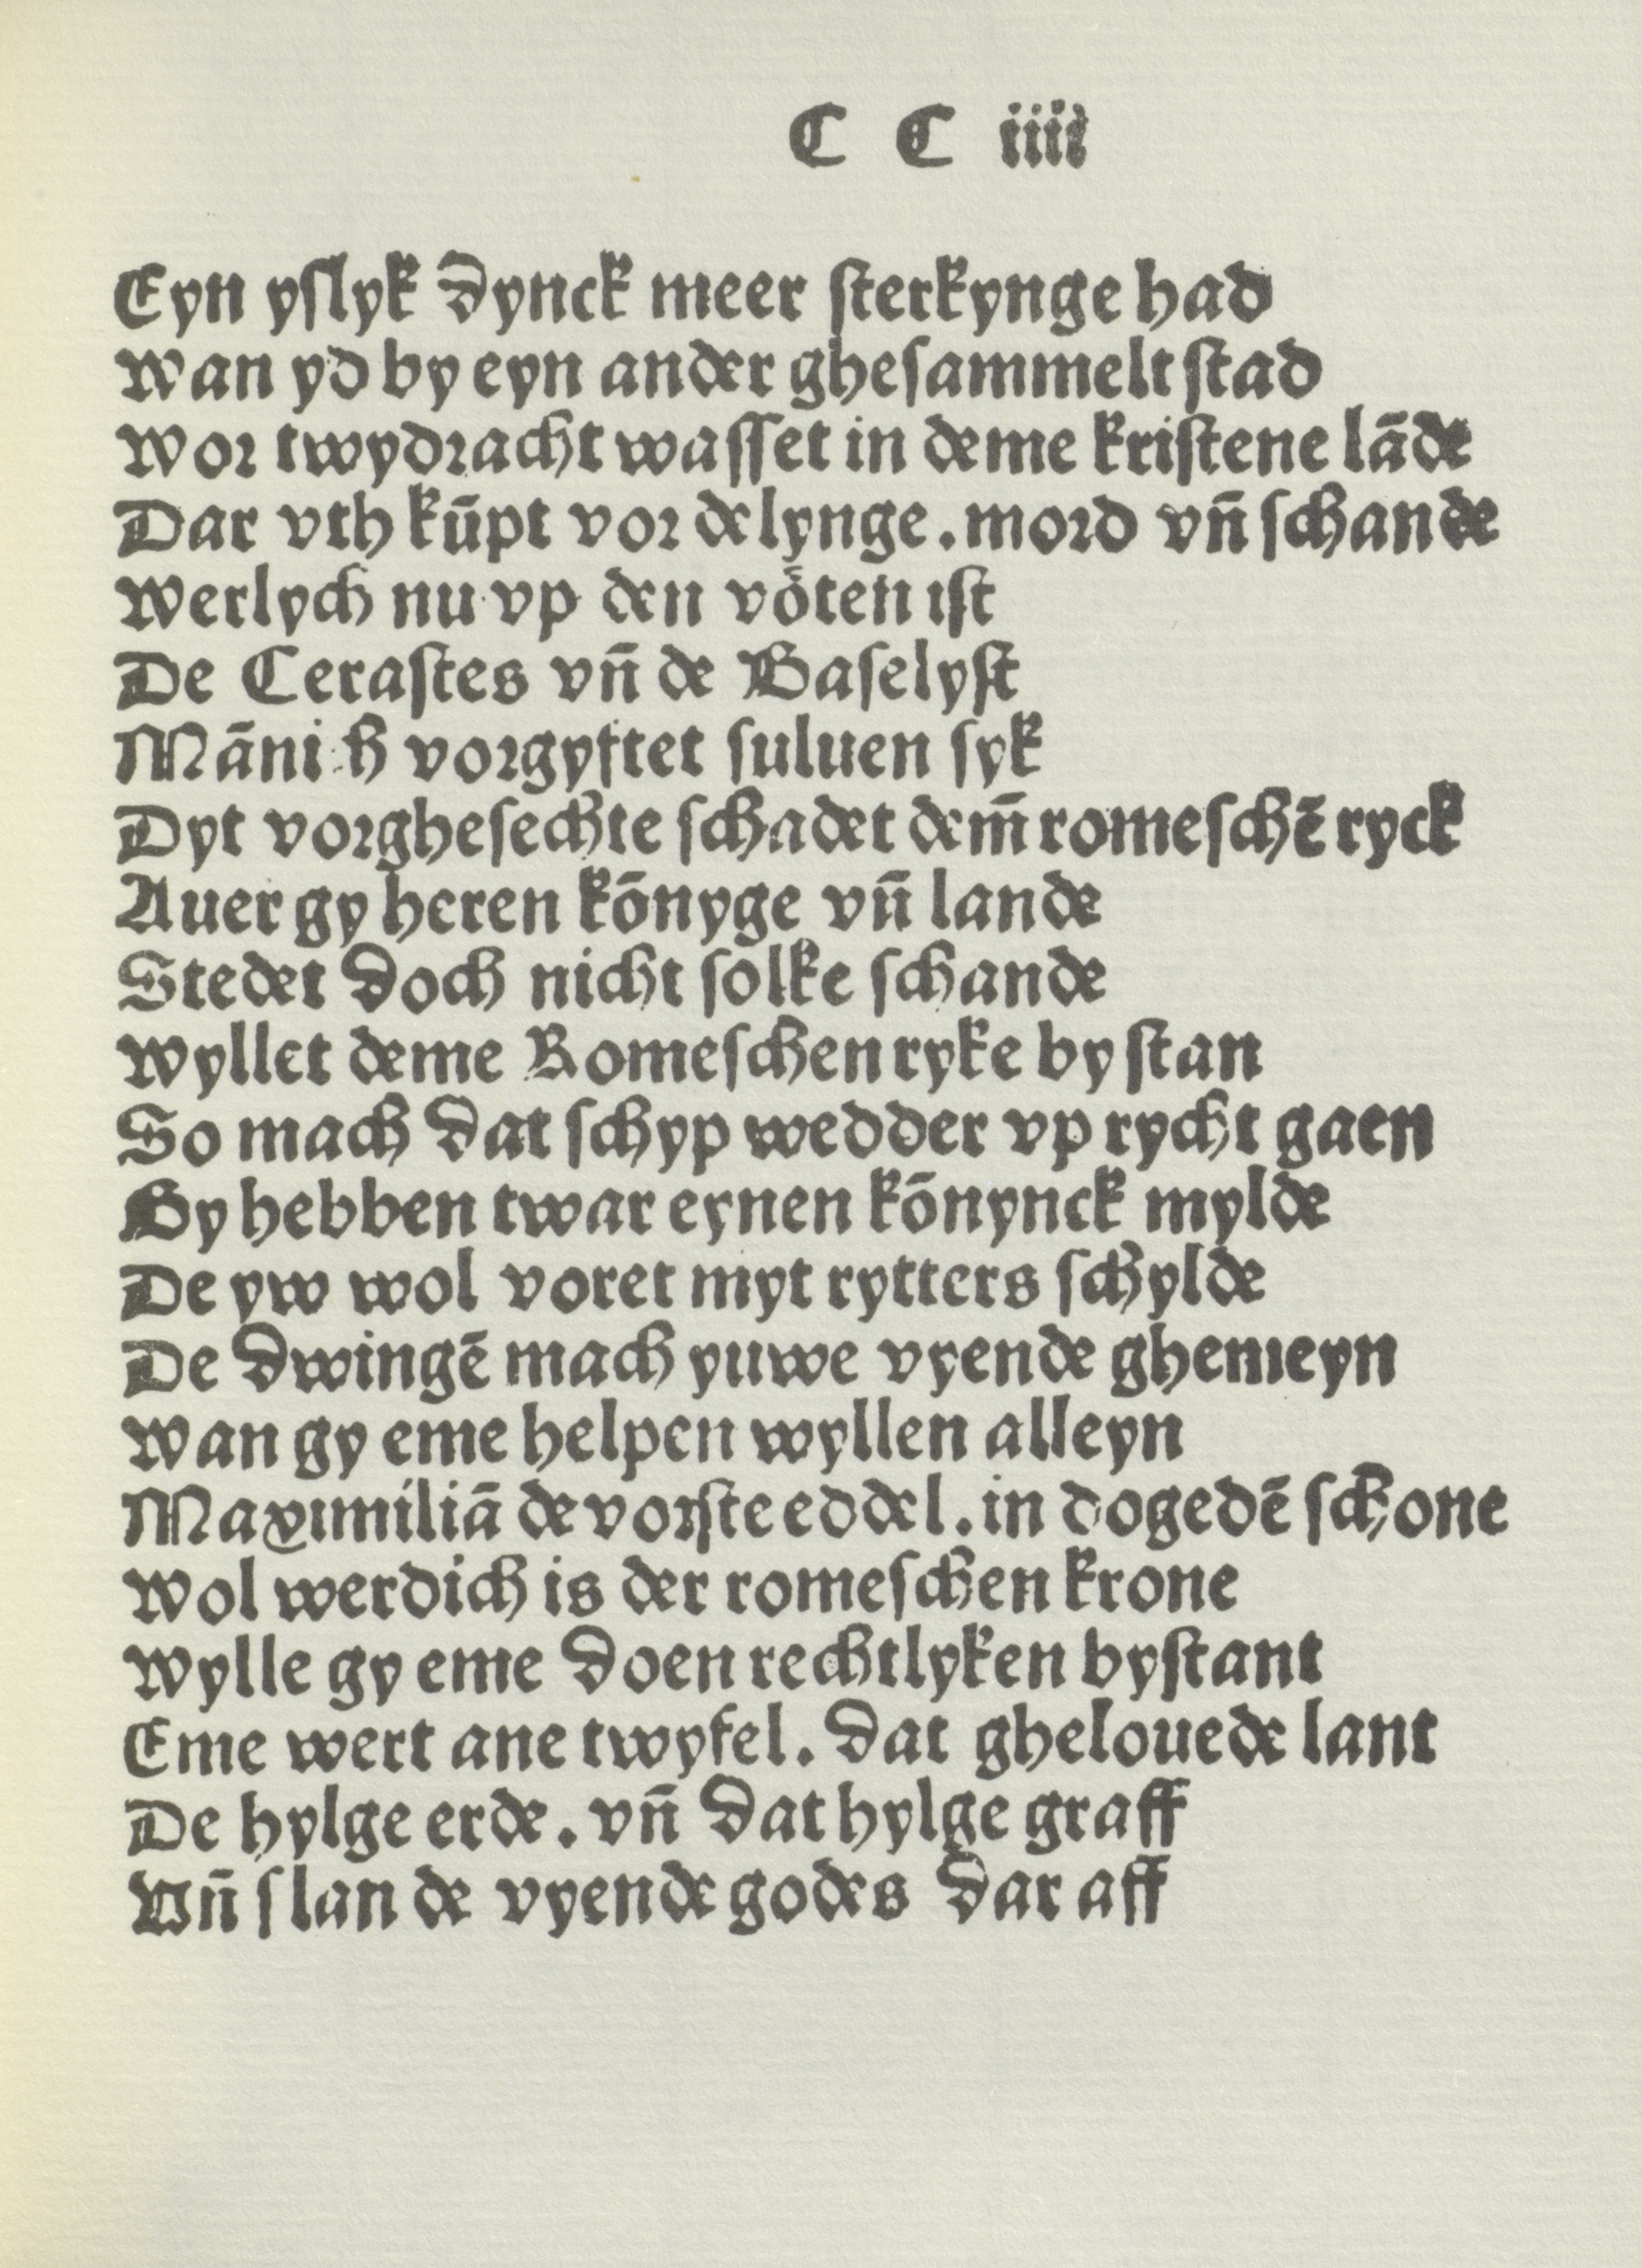 C C iiii
Eyn yſlyk dynck meer ſterkynge had
Wan yd by eyn ander gheſammelt ſtad
Wor twydracht waſſet in deme kriſtene lāde
Dar vth kūpt vordelynge. mord vn̄ ſchande
Werlych nu vp den vo͛ten iſt
De Ceraſtes vn̄ de Baſelyſt
vorgyftet ſuluen ſyk
Dyt vorgheſechte ſchadet dem̄ romeſchē ryck
Auer gy heren kōnyge vn̄ lande
Stedet doch nicht ſolke ſchande
Wyllet deme Romeſchen ryke by ſtan
So mach dat ſchyp wedder vp rycht gaen
Gy hebben twar eynen kōnynck mylde
De yw wol voret myt rytters ſchylde
De dwingē mach yuwe vyende ghemeyn
Wan gy eme helpen wyllen alleyn
Maximiliā de vorſte eddel. in dogedē ſchone
Wol werdich is der romeſchen krone
Wylle gy eme doen rechtlyken byſtant
Eme wert ane twyfel. dat ghelouede lant
De hylge erde. vn̄ dat hylge graff
Vn̄ ſlan de vyende godes dar aff